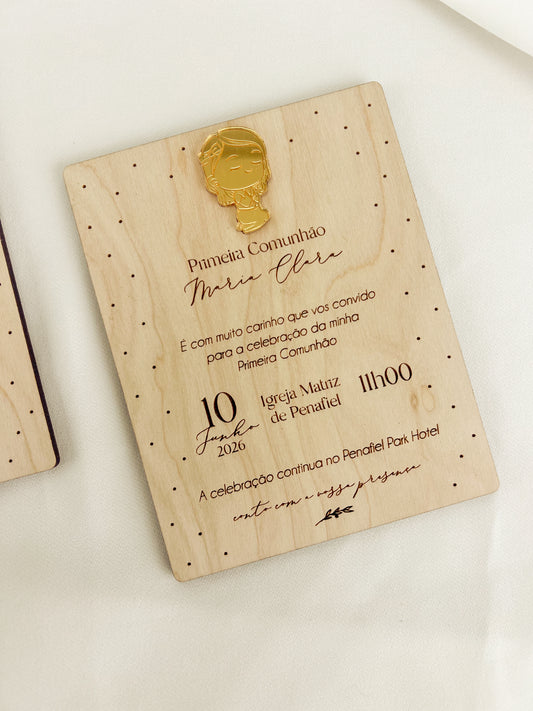 Primeira Comunhão
Maria Clara
É com muito carinho que vos convido
para a celebração da minha
Primeira Comunhão
10
Junho
2026
Igreja Matriz
de Penafiel
11h00
A celebração continua no Penafiel Park Hotel
conto com a vossa presença